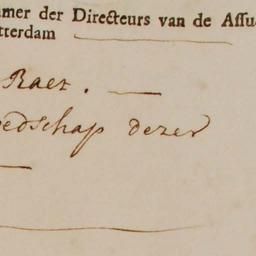 mer der Directeurs van de Assu
tterdam
Raet.
edschap dezer